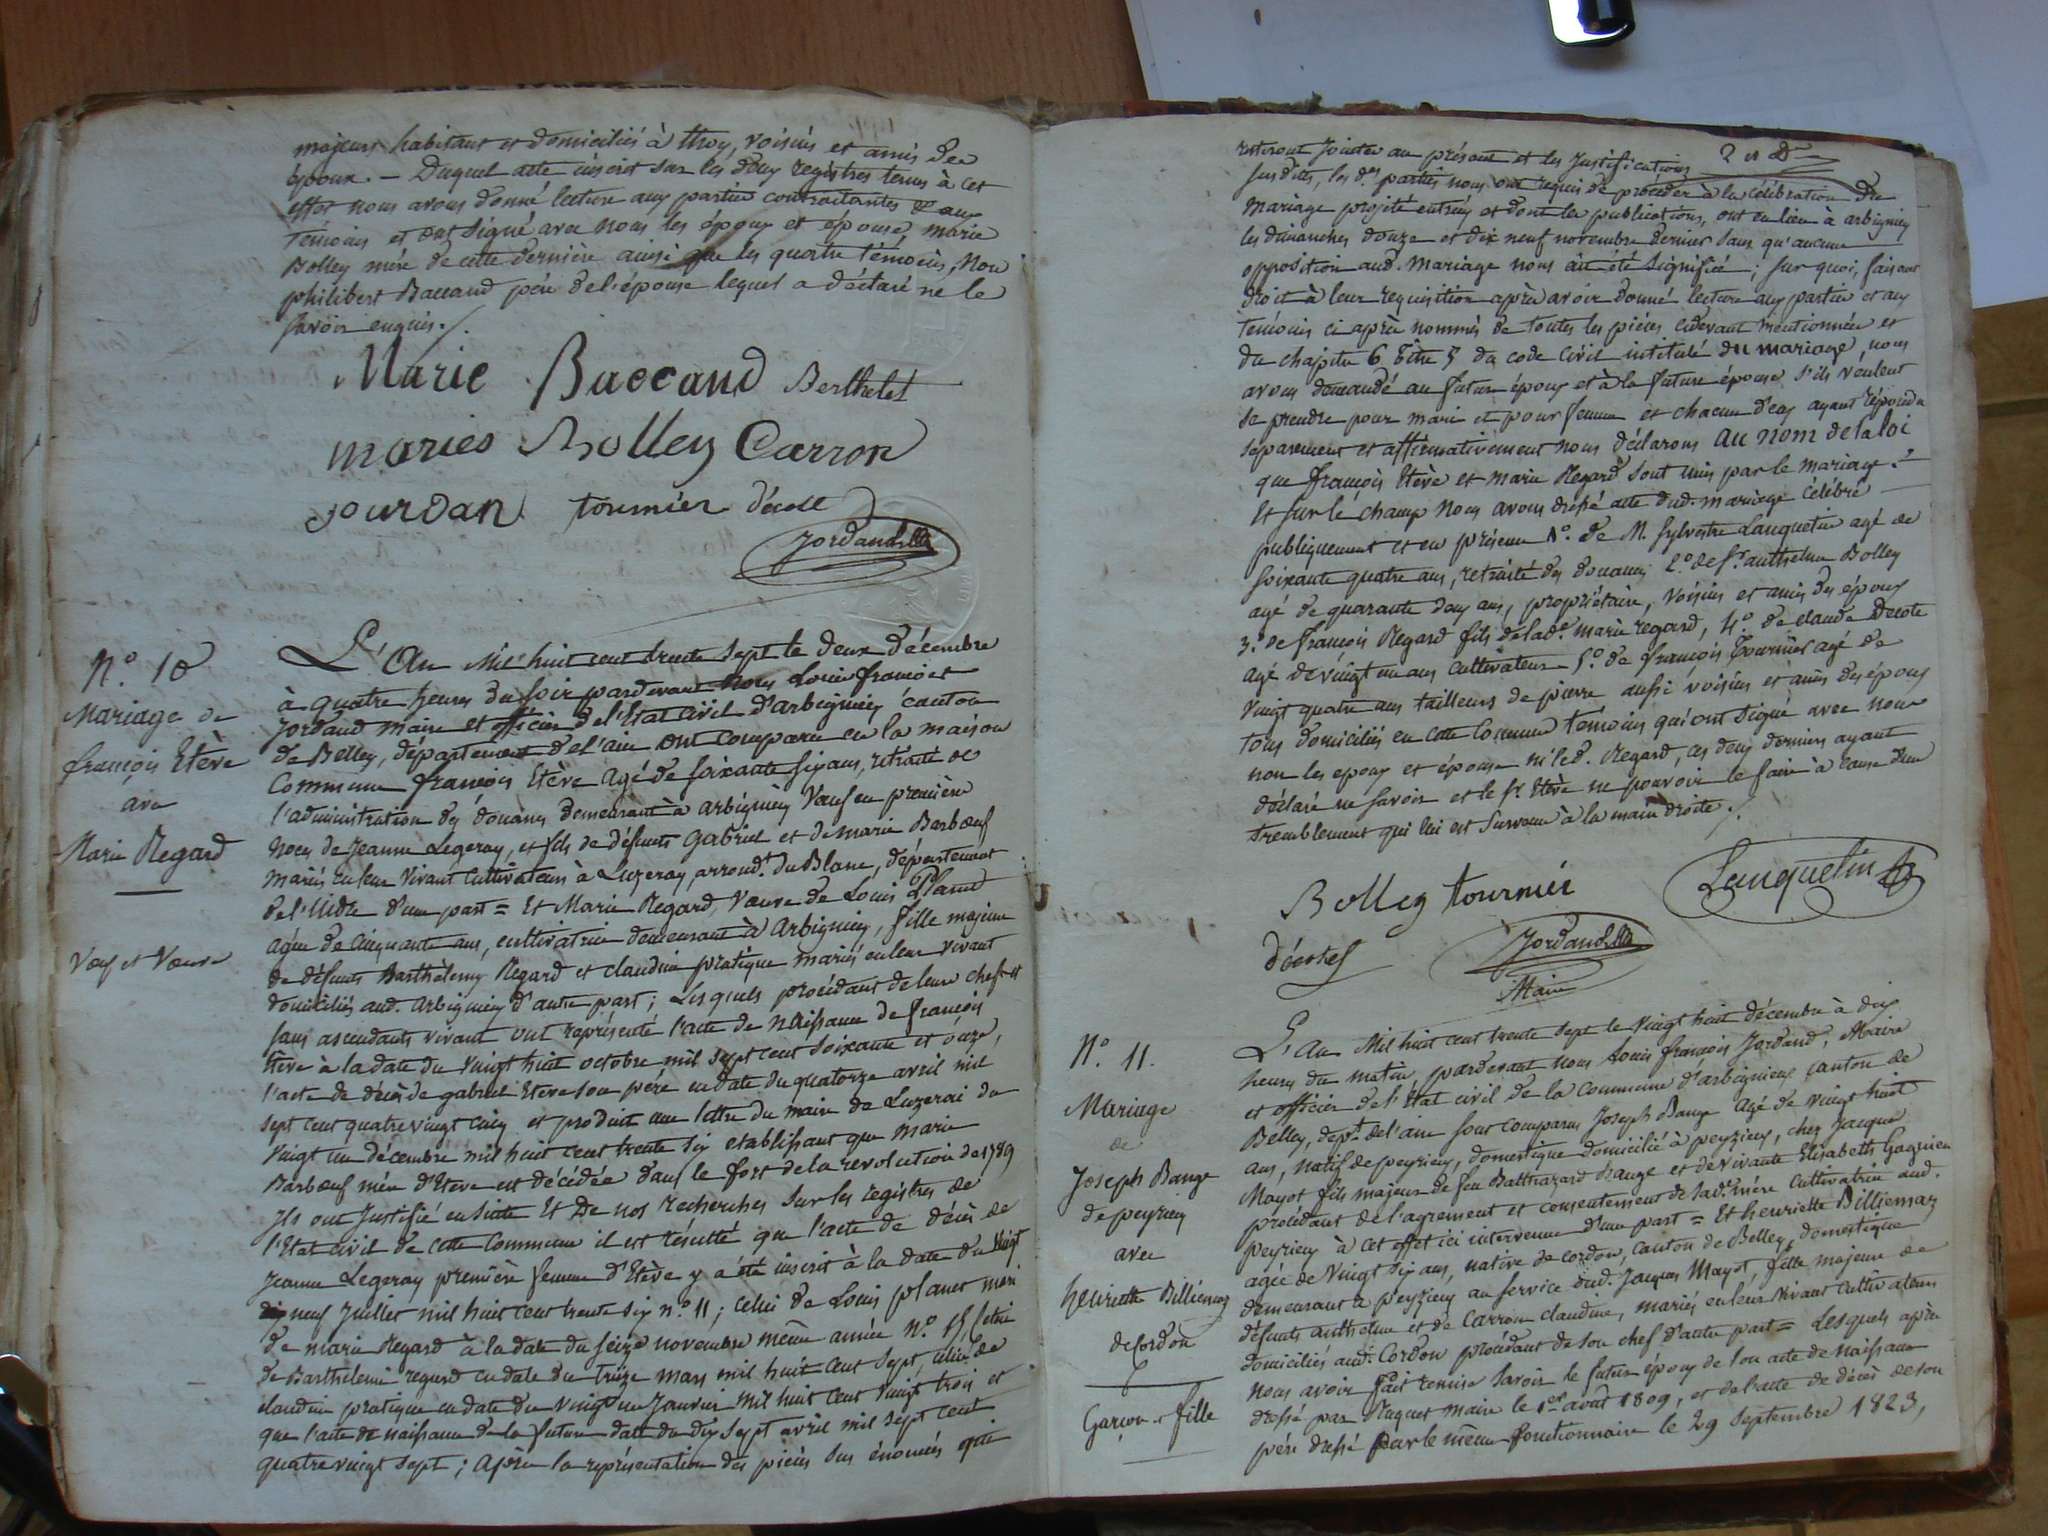 majeurs habitant et domiciliés à thoy, voisins et amis des
époux. — Duquel acte inscrit sur les deux registres tenus à cet
effet nous avons donné lecture aux parties contractantes & aux
témoins et ont signé avec nous les époux et épouse, marie
Bolley mère de cette dernière ainsi que les quatre témoins, Non
philibert Baccand père de l'épouse lequel a déclaré ne le
savoir enquis ./.
Marie Baccand Berthelet
maries Bolley Carron
jourdan tournier décote
Jordand
N.o 10
Mariage de
françois Etève
avec
Marie Regard
Veuf et Veuve
L'An Mil huit cent trente sept le deux décembre
à quatre heures du soir pardevant Nous Louis françois
Jordand maire et officier de l'Etat civil d'arbignieu canton
de Belley, département de l'ain ont comparu en la maison
Commune françois Etève agé de soixante six ans, retraité de
l'administration des douanes demeurant à arbignieu Veuf en première
Noces de Jeanne Legeray, et fils de défunts Gabriel et de marie Barbœuf
mariés en leur vivant cultivateurs à Luzeray, arrond.t du Blanc, département
de l'Indre d'une part = Et Marie Regard, Veuve de Louis Planet
agée de cinquante ans, cultivatrice demeurant à Arbignieu, fille majeure
de défunts Barthélemy Regard et claudine pratique mariés en leur vivant
domiciliés aud. arbignieu d'autre part ; Lesquels procédant de leur chef et
sans ascendants vivant ont représenté l'acte de naissance de françois
Etève à la date du vingt huit octobre mil sept cent soixante et onze,
l'acte de décès de gabriel Etève son père en date du quatorze avril mil
sept cent quatre vingt cinq et produit une lettre du maire de Luzerai du
vingt un décembre mil huit cent trente six etablissant que marie
Barbœuf mère d'Eteve est décédée dans le fort de la revolution de 1789
Ils ont Justifié ensuite Et De nos recherches sur les registres de
l'Etat civil de cette Commune il est résulté que l'acte de décès de
Jeanne Legeray première femme d'Etève y a été inscrit à la date du vingt
neuf Juillet mil huit cent trente six n.o 11 ; celui de Louis planet mari
de marie Regard à la date du seize novembre même année N.o 15,
de Barthélemi regard en date du treize mars mil huit cent sept, celui de
claudine pratique en date du vingt un Janvier mil huit cent vingt trois et
que l'acte de naissance de la future date du dix sept avril mil sept cent
quatre vingt sept ; après la représentation des pièces sus énoncées qui
resteront Jointes au présent et les Justifications
susdites, les d.es parties nous ont requis de procéder à la célébration du
mariage projeté entr'eux et dont les publications, ont eu lieu à arbignieu
les dimanches douze et dix neuf novembre dernier sans qu'aucune
opposition aud. mariage nous ait été signifiée ; sur quoi, faisant
droit à leur requisition après avoir donné lecture aux parties et aux
témoins ci après nommés de toutes les pièces cidevant mentionnées et
du chapitre 6 titre 5 du code civil intitulé du mariage, nous
avons demandé au futur époux et à la future épouse s'ils veulent
se prendre pour mari et pour femme et chacun d'eux ayant répondu
séparement et affirmativement nous déclarons au nom de la loi
que françois Etève et marie Regard sont unis par le mariage.
Et sur le champ Nous avons dressé acte dud. mariage célébré
publiquement et en présence 1.o de M. Sylvestre Lanquetin agé de
soixante quatre ans, retraité des douanes 2.o de S.r anthelme Bolley
agé de quarante deux ans, propriétaire, voisins et amis des époux
3.o de françois Regard fils de lad.e marie regard, 4.o de claude Decote
agé de vingt un ans cultivateur 5.o de françois Tournier agé de
vingt quatre ans tailleurs de pierre aussi voisins et amis des époux
tous domiciliés en cette Commune témoins qui ont signé avec nous
non les époux et épouse ni led. Regard, ces deux derniers ayant
déclaré ne savoir et le s.r Etève ne pouvoir le faire à cause d'un
tremblement qui lui est survenu à la main droite ./.
Bolley tournier Lanquetin
décotes Jordand
Maire
N.o 11.
Mariage
de
Joseph Bange
de peyrieu
avec
henriette Billiemaz
de Cordon
Garçon et fille
L'an Mil huit cent trente sept le vingt huit décembre à dix
heures du matin pardevant nous Louis françois Jordand, Maire
et officier de l'Etat civil de la Commune d'arbignieu canton de
Belley, dep.t de l'ain sont comparus Joseph Bange agé de vingt huit
ans, natif de peyrieu, domestique domicilié à peyzieu, chez Jacques
Mayot fils majeur de feu Balthazard Bange et de vivante Elisabeth Gagnieu
procédant de l'agrement et consentement de sad.e mère cultivatrice aud.
peyrieu à cet effet ici intervenue d'une part = Et henriette Billiemaz
agée de vingt six ans, native de cordon, canton de Belley, domestique
demeurant à peyzieu au service dud. Jacques Mayot, fille majeure de
défunts anthelme et de Carron claudine, mariés en leur vivant cultivateurs
domiciliés aud. Cordon procédant de son chef d'autre part = Lesquels après
nous avoir fait remise savoir le futur époux de son acte de naissance
dressé par Raquet maire le 1.er août 1809, et de l'acte de décès de son
père dressé par le même fonctionnaire le 29 septembre 1823,